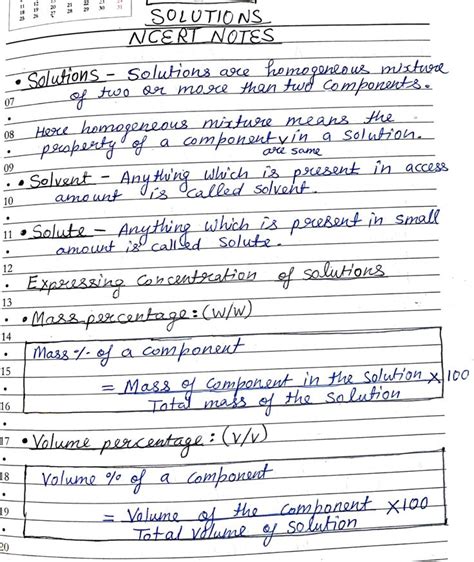 SOLUTIONS
NCERT NOTES
• Solutions - Solutions are homogeneous mixture
of two or more than two components.
07
08 Here homogeneous mixture means the
property of a component in a solution.
are same
09
• Solvent - Anything which is present in access
10 amount is called solvent.
11 • Solute - Anything which is present in small
amount is called Solute.
12
Expressing Concentration of solutions
13
• Mass percentage: (w/w)
14
Mass % of a component
15
= Mass of component in the solution × 100
16 Total mass of the solution
17 • Volume percentage: (v/v)
18 Volume % of a component
19 = Volume of the component ×100
Total volume of solution
20